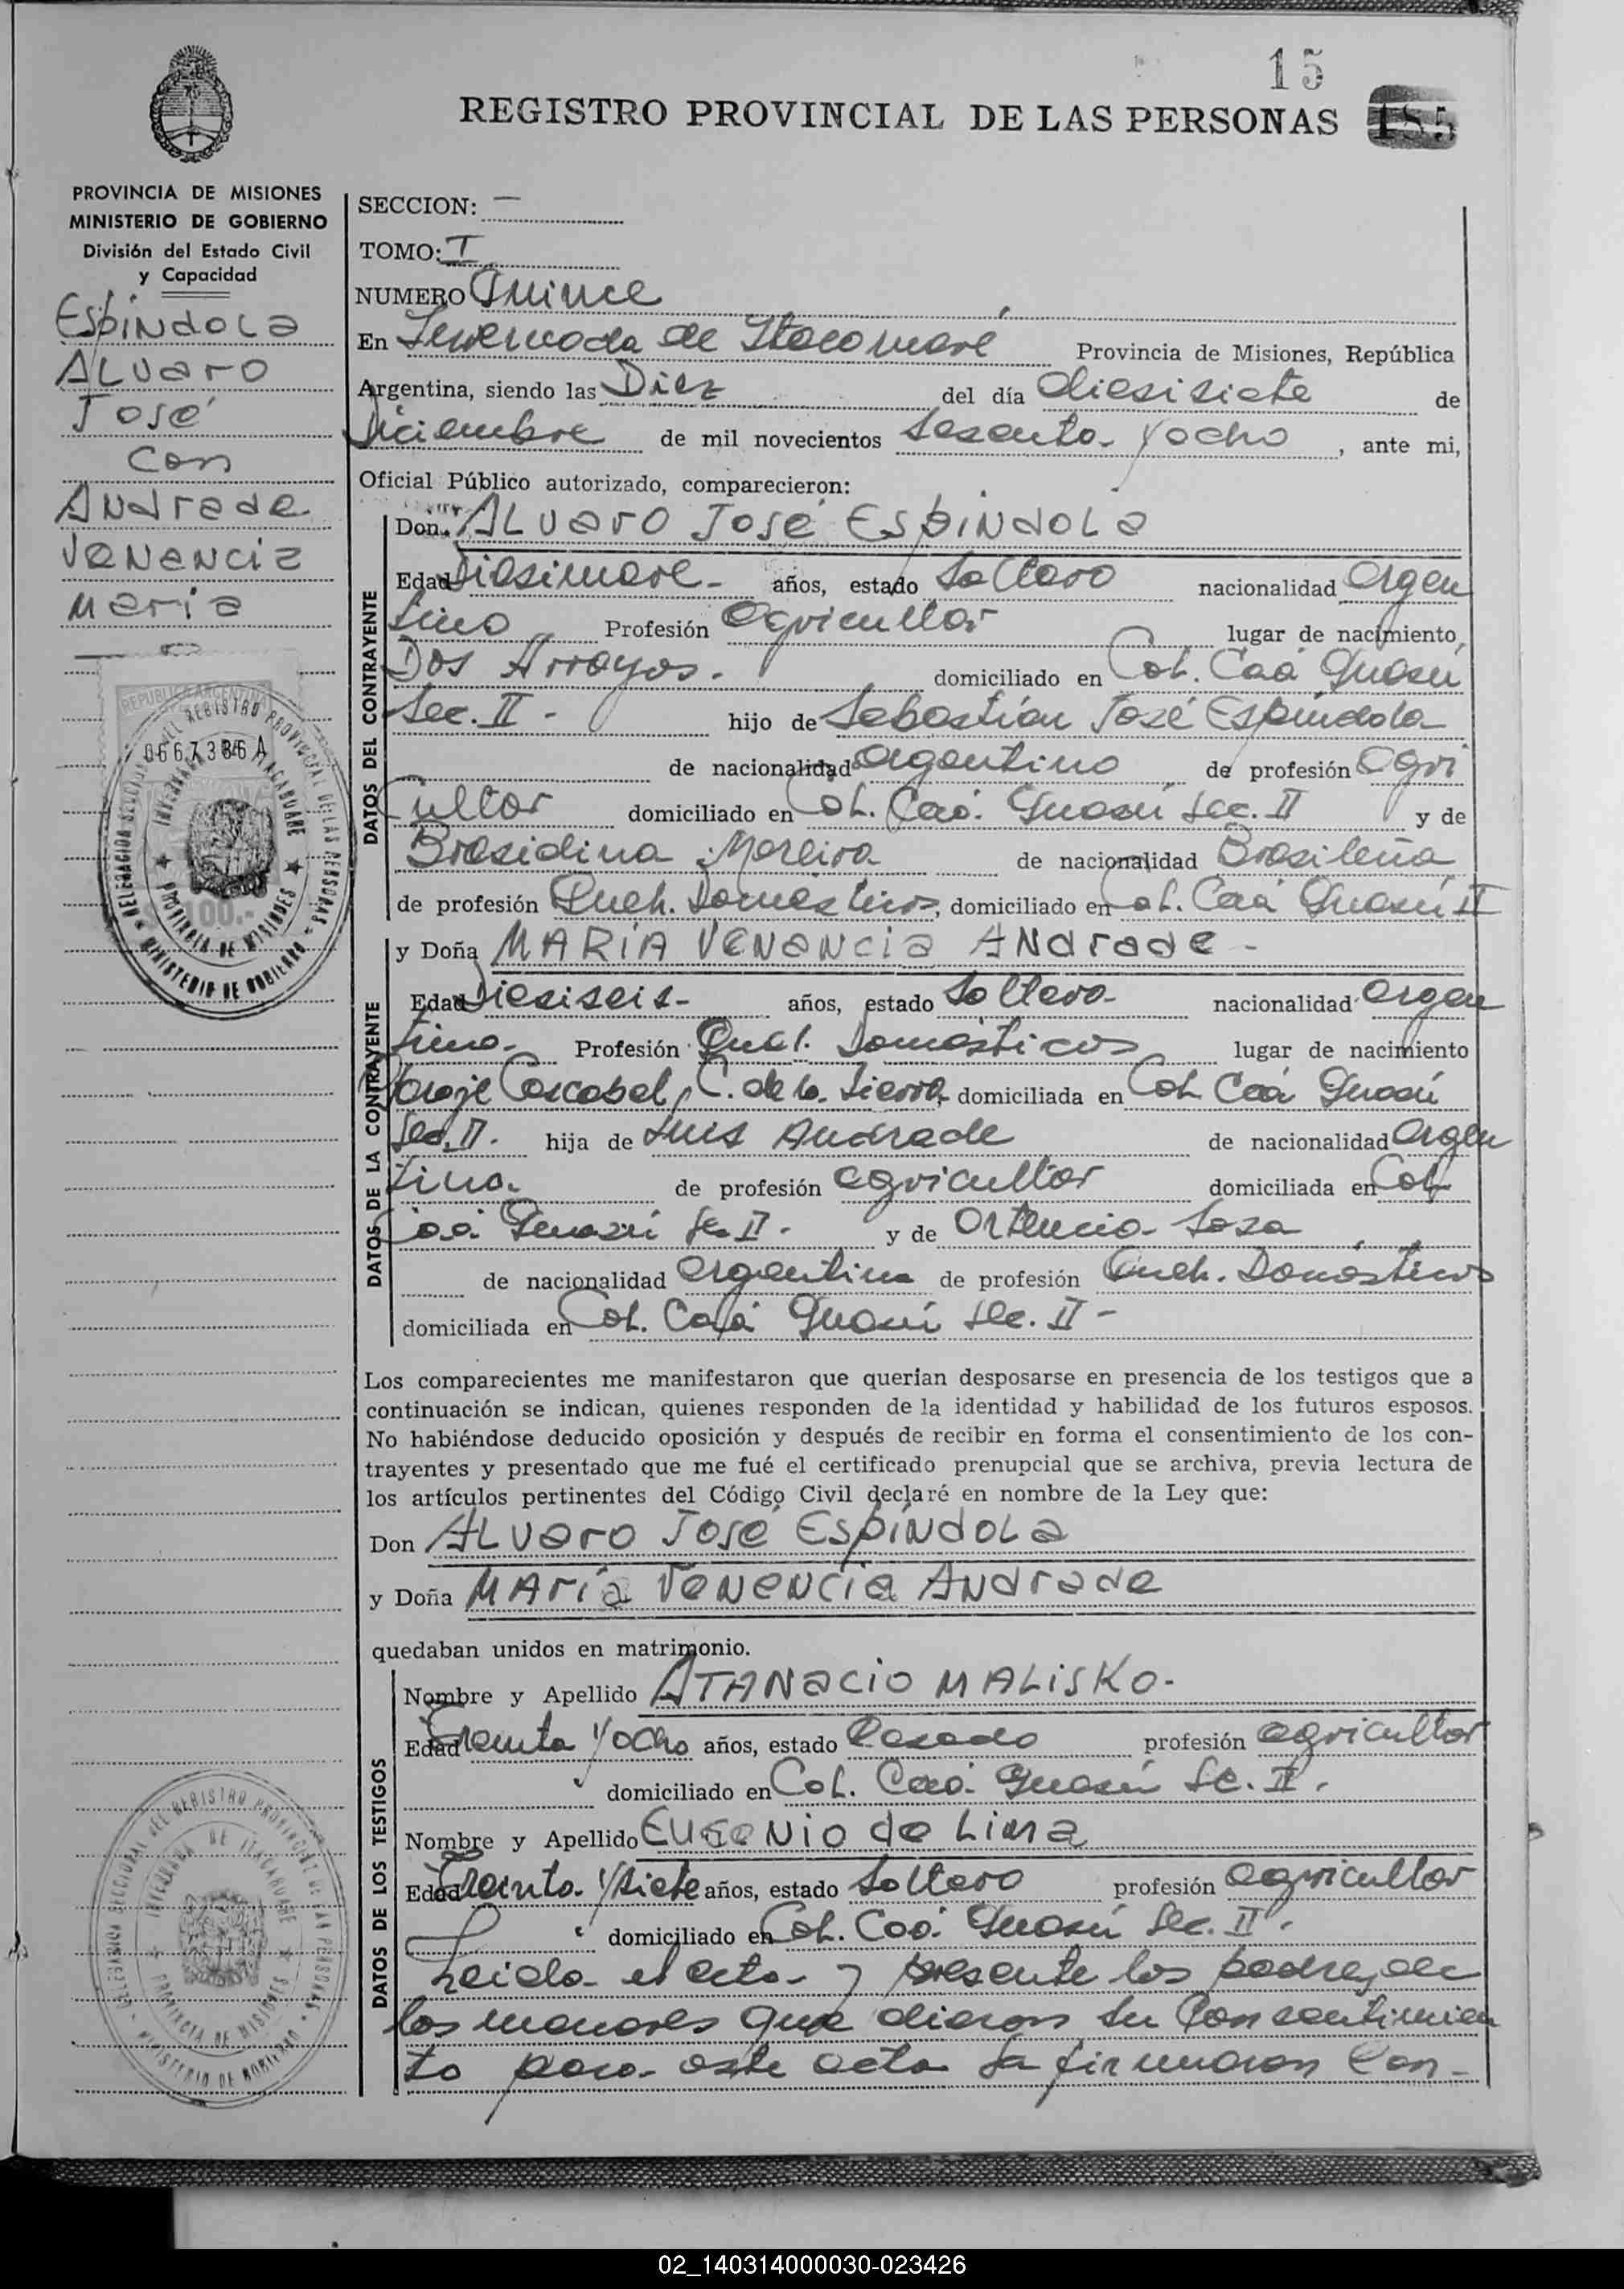 15
REGISTRO PROVINCIAL DE LAS PERSONAS 185
PROVINCIA DE MISIONES
MINISTERIO DE GOBIERNO
División del Estado Civil
y Capacidad
Espíndola
Alvaro
José
con
Andrade
Venancia
Maria
REPUBLICA ARGENTINA
0667386 A
100.-
DELEGACION SECCIONAL DEL REGISTRO PROVINCIAL DE LAS PERSONAS
INTERNADA DE ITACARUARE
PROVINCIA DE MISIONES
MINISTERIO DE GOBIERNO
SECCION: —
TOMO: I
NUMERO Quince
En Internada de Itacaruaré Provincia de Misiones, República
Argentina, siendo las Diez del día diesisiete de
Diciembre de mil novecientos sesenta y ocho, ante mi,
Oficial Público autorizado, comparecieron:
DATOS DEL CONTRAYENTE
Don. Alvaro José Espíndola
Edad Diesinueve- años, estado Soltero nacionalidad Argen
tino Profesión agricultor lugar de nacimiento
Dos Arroyos. domiciliado en Col. Caá Guasú
Sec. II - hijo de Sebastián José Espíndola
de nacionalidad argentino de profesión Agri
cultor domiciliado en Col. Caá. Guasú Sec. II y de
Brasidina Moreira de nacionalidad Brasileña
de profesión Queh. Domésticos, domiciliado en Col. Caá Guasú II
DATOS DE LA CONTRAYENTE
y Doña MARÍA Venancia Andrade -
Edad Diesiseis- años, estado Soltera- nacionalidad Argen
tina- Profesión Domésticos lugar de nacimiento
Paraje Cascabel, C. de la Sierra, domiciliada en Col Caá Guasú
Sec. II. hija de Luis Andrade de nacionalidad Argen
tina. de profesión agricultor domiciliada en Col
Caá Guasú Sec II. y de Ortencia Sosa
de nacionalidad argentina de profesión Queh. Domésticos
domiciliada en Col. Caá Guasú Sec. II -
Los comparecientes me manifestaron que querian desposarse en presencia de los testigos que a
continuación se indican, quienes responden de la identidad y habilidad de los futuros esposos.
No habiéndose deducido oposición y después de recibir en forma el consentimiento de los con-
trayentes y presentado que me fué el certificado prenupcial que se archiva, previa lectura de
los artículos pertinentes del Código Civil declaré en nombre de la Ley que:
Don Alvaro José Espíndola
y Doña María Venencia Andrade
quedaban unidos en matrimonio.
DATOS DE LOS TESTIGOS
Nombre y Apellido ATANACIO MALISKO-
Edad Treinta y ocho años, estado Casado profesión agricultor
domiciliado en Col. Caá. Guasú Sec. II.
Nombre y Apellido Eugenio de Lima
Edad Treinta y siete años, estado Soltero profesión agricultor
domiciliado en Col. Caá. Guasú Sec. II.
Leida el acta y presente los padres de
los menores que dieron su consentimien
to para este acta la firmaron Con-
DELEGACION SECCIONAL DEL REGISTRO PROVINCIAL DE LAS PERSONAS
INTERNADA DE ITACARUARE
PROVINCIA DE MISIONES
MINISTERIO DE GOBIERNO
02_140314000030-023426